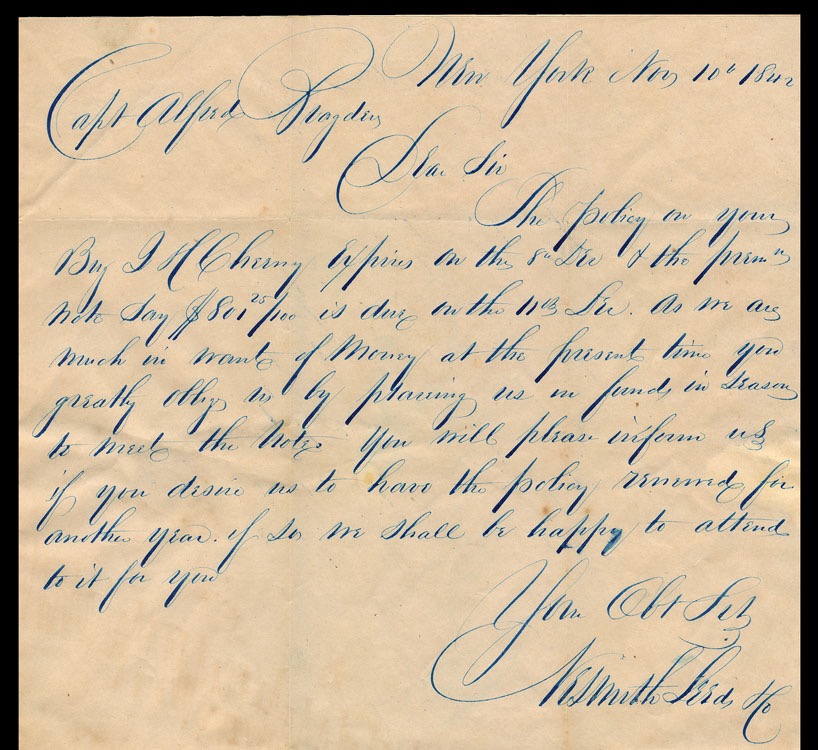 New York Nov 10th 1842
Capt Alfred
Dear Sir
The policy on your
Brig J H Cherry Expires on the 8th Dec & the premm
Note Say $801 25/100 is due on the 11th Dec. As we are
much in want of Money at the present time you
greatly oblige us by placing us in funds in Season
to meet the Note. You will please inform us
if you desire us to have the policy renewed for
another year. if so we shall be happy to attend
to it for you
Your Obt Sets
Nesmith Leeds & Co